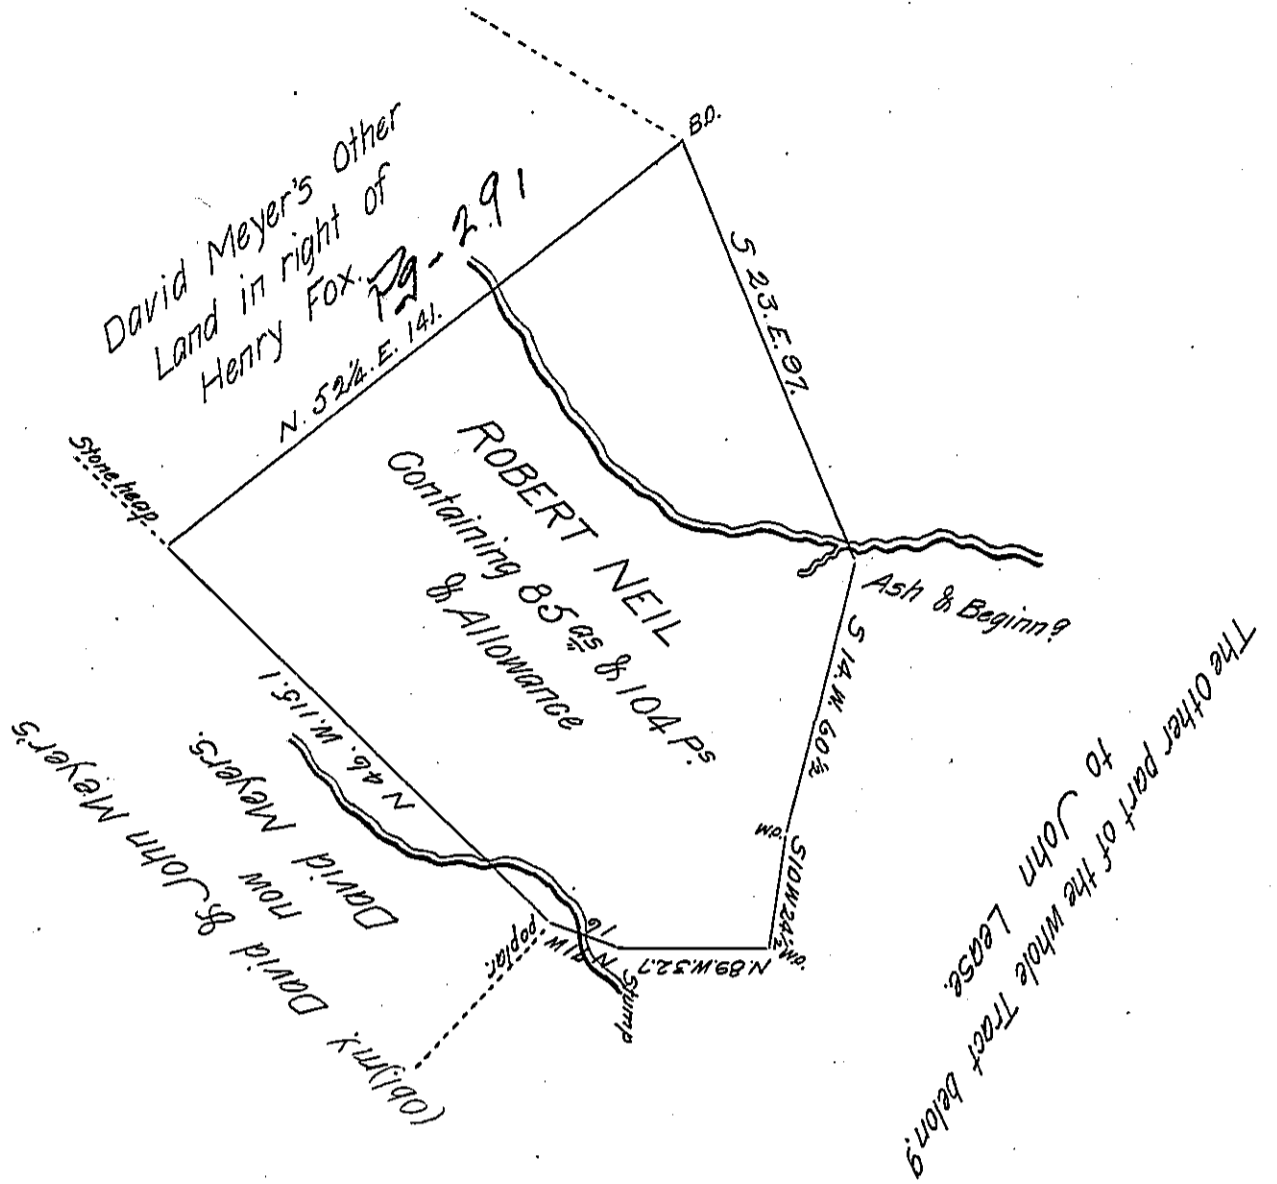 B.O.
David Meyer's Other
Land in right of
Henry Fox.
Pg - 291
N. 52¼. E. 141.
S 23. E. 97.
Stone heap
ROBERT NEIL
Containing 85 as & 104 Ps.
& Allowance
Ash & Beginn.g
S 14. W. 60½
W.O.
S10W 24½
W.O.
N.89.W.32.7
N 71W
16
Stump
poplar.
N 46. W. 115.1
David & John Meyer's
now
David Meyers.
The Other part of the whole Tract belon.g
to John Lease.